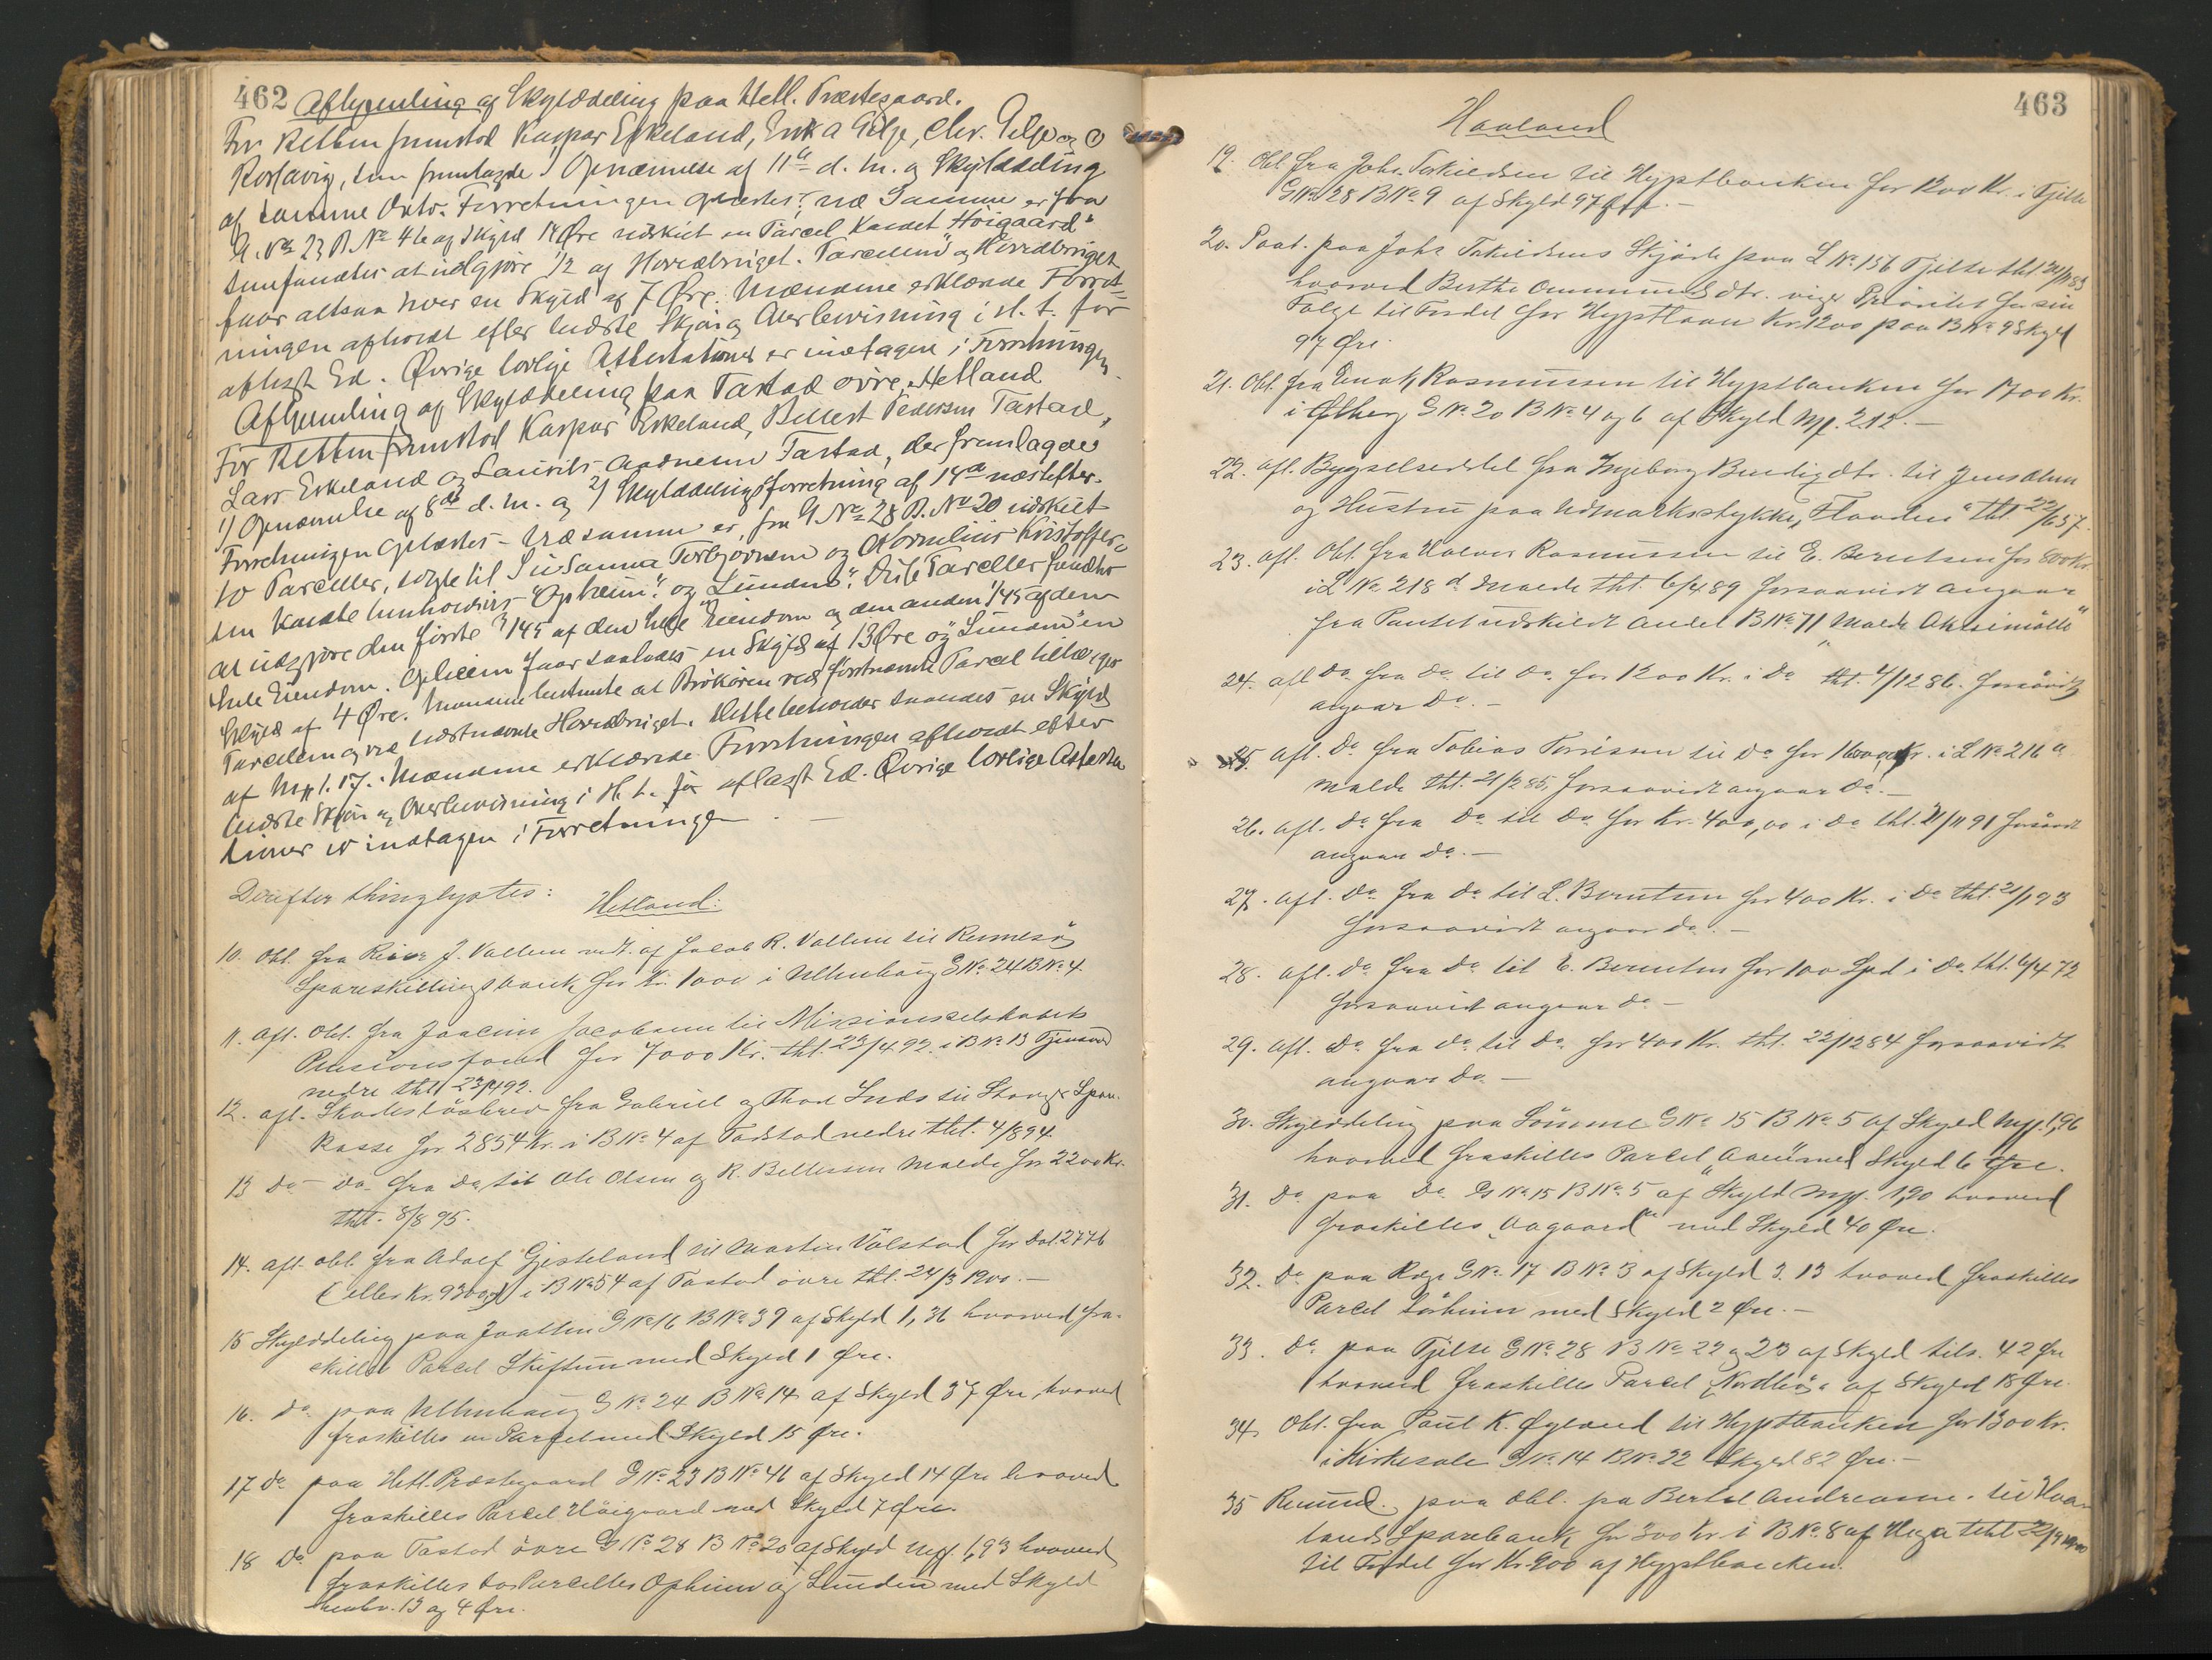 462 Afhjemling af Skylddeling paa Hetl. Præstegaard.
For Retten fremstod Kaspar Eskeland, Erik A Gilje, Chr. Gilje og O
Rossavig, som fremlagde 1) Opnævnelse af 11te d. M. og Skylddeling
af samme Dato. Forretningen oplæstes; ved Samme er fra
G. No 23 B. No 46 af Skyld 14 Øre udskilt en Parcel kaldet "Høigaard"
som fandtes at udgjøre 1/2 af Hovedbruget. Parcellen og Hovedbruget
faar altsaa hver en Skyld af 7 Øre. Mændene erklærede Forret-
ningen afholdt efter bedste Skjøn og Overbevisning i H. t. før
aflagt Ed. Øvrige lovlige Attestationer er indtagen i Forretningen.
Afhjemling af Skylddeling paa Tastad øvre, Hetland
For Retten fremstod Kaspar Eskeland, Billert Pedersen Tastad,
Lars Eskeland og Laurits Andersen Tastad, der fremlagde
1) Opnævnelse af 8de d. M. og 2) Skylddelingsforretning af 14de næstefter.
Forretningen oplæstes - Ved samme er fra G No 28 B. No 20 udskilt
to Parceller, solgte til Susanna Torbjørnsen og Kornelius Kristoffer-
sen kaldte henholdsvis "Opheim" og "Lunden". Disse Parceller fandtes
at udgjøre den første 3/45 af den hele Eiendom og den anden 1/45 af den
hele Eiendom. Opheim faar saaledes en Skyld af 13 Øre og Lunden en
Skyld af 4 Øre. Mændene bestemte at Birkøren ved førstnævnte Parcel tillægges
Parcellen og ved sidstnævnte Hovedbruget. Dette beholder saaledes en Skyld
af Mrk 1.77. Mændene erklærede Forretningen afholdt efter
bedste Skjøn og Overbevisning i H. t. før aflagt Ed. Øvrige lovlige Attesta
tioner er indtagen i Forretningen. —
Derefter thinglystes:
Hetland:
10. Obl. fra J. Vallem vedt. af Jacob R. Vallem til Rennesø
Spareskillingsbank for Kr. 1000 i Ullenhaug G No 24 B No 4.
11. Afl. Obl. fra Joacim Jacobsen til Missionsselskabets
Pensionsfond for 7000 Kr. thl. 23/4 92. i B No 13 Tjensvold
nedre thl 23/4 92.
12. afl. Skadesløsbrev fra Gabriel og Thore Inds til Stavgr Spare
kasse for 2854 Kr. i B No 4 af Tastad nedre thl. 4/8 94.
13 Do - do. fra do til Ole Olsen og R. Bellesen Malde for 2200 Kr.
thl. 8/8 95.
14. Afl. obl. fra Adolf Gjesteland til Martin Vølstad for Dol. 2746
(eller Kr. 9300) i B No 54 af Tastad øvre thl. 24/3 1900. —
15 Skylddeling paa Jaatten G No 16 B No 39 af Skyld 1,36 hvorved fra-
skilles Parcel Skiftun med Skyld 1 Øre.
16. do paa Ullenhaug G No 24 B No 14 af Skyld 37 Øre, hvorved
fraskilles en Parcel med Skyld 15 Øre.
17 do paa Hetl. Præstegaard G No 23 B No 46 af Skyld 14 Øre hvorved
fraskilles Parcel Høigaard med Skyld 7 Øre.
18 do paa Tastad øvre G No 28 B No 20 af Skyld Mrk. 1,93 hvorved
fraskilles to Parceller Opheim og Lunden med Skyld
henhv. 13 og 4 Øre.
463
Haaland
19. Obl. fra Johs. Torkildsen til Hyptbanken for 1200 Kr. i Tjelte
G No 28 B No 9 af Skyld 97 Øre. —
20. Paat. paa Johs Torkildsens Skjøde paa L No 156 Tjelte thl
hvorved Berthe Ommundsdtr. viger Prioritet for sin
Følge til Fordel for Hyptlaan Kr. 1200 paa B No 9 Skyld
97 Øre.
21. Obl. fra Enok Rasmussen til Hyptbanken for 1700 Kr.
i Ølberg G No 20 B No 4 og 6 af Skyld Mrk. 2.12. —
22. afl. Bygselseddel fra Ingeborg Bendigdtr. til Jens
og Hustru paa Udmarksstykke, "Flaaden" thl. 22/6 57.
23. afl. Obl. fra Halvor Rasmussen til E. Berntsen for 800 Kr.
i L No 218 d Malde thl. 6/4 89 forsaavidt angaar
fra Pantet udskildt Andel B No 71 "Malde
24. afl. Do fra do til do for 1200 Kr. i do thl. 4/12 86. forsaavidt
angaar do. —
25. afl. do fra Tobias Tørrissen til do for 1600 Kr. i L No 216 a
Malde thl. 21/2 85, forsaavidt angaar do. —
26. afl. do fra do til do for Kr. 400,00 i do thl. 21/11 91 forsaavidt
angaar do. —
27. afl. do fra do til L. Berntsen for 400 Kr. i do thl. 21/1 93
forsaavidt angaar do. —
28. afl. do fra do til E. Berntsen for 100 Spd i do thl. 6/4 72
forsaavidt angaar do —
29. afl. do fra do til do for 400 Kr. thl. 22/12 84 forsaavidt
angaar do —
30. Skylddeling paa Sømme G No 15 B No 5 af Skyld Mrk. 1,96
hvorved fraskilles Parcel "Aaen" med Skyld 6 Øre.
31. do paa do G No 15 B No 5 af Skyld Mrk. 1,90 hvorved
fraskilles "Aagaard" med Skyld 40 Øre.
32. do paa Rege G No 17 B No 3 af Skyld 3.13 hvorved fraskilles
Parcel Sørheim med Skyld 2 Øre. —
33. do paa Tjelte G No 28 B No 22 og 23 af Skyld tils. 42 Øre
hvorved fraskilles Parcel "Nordbø" af Skyld 18 Øre.
34. Obl. fra Paul K. Øyland til Hyptbanken for 1300 Kr.
i Kirkesole G No 14 B No 22 Skyld 82 Øre. —
35 paa Obl. fra Bertel Andreasen til Haa-
lands Sparebank for 300 Kr. i B No 8 af Haga thl
til Fordel for Kr. 900 af Hyptbanken.